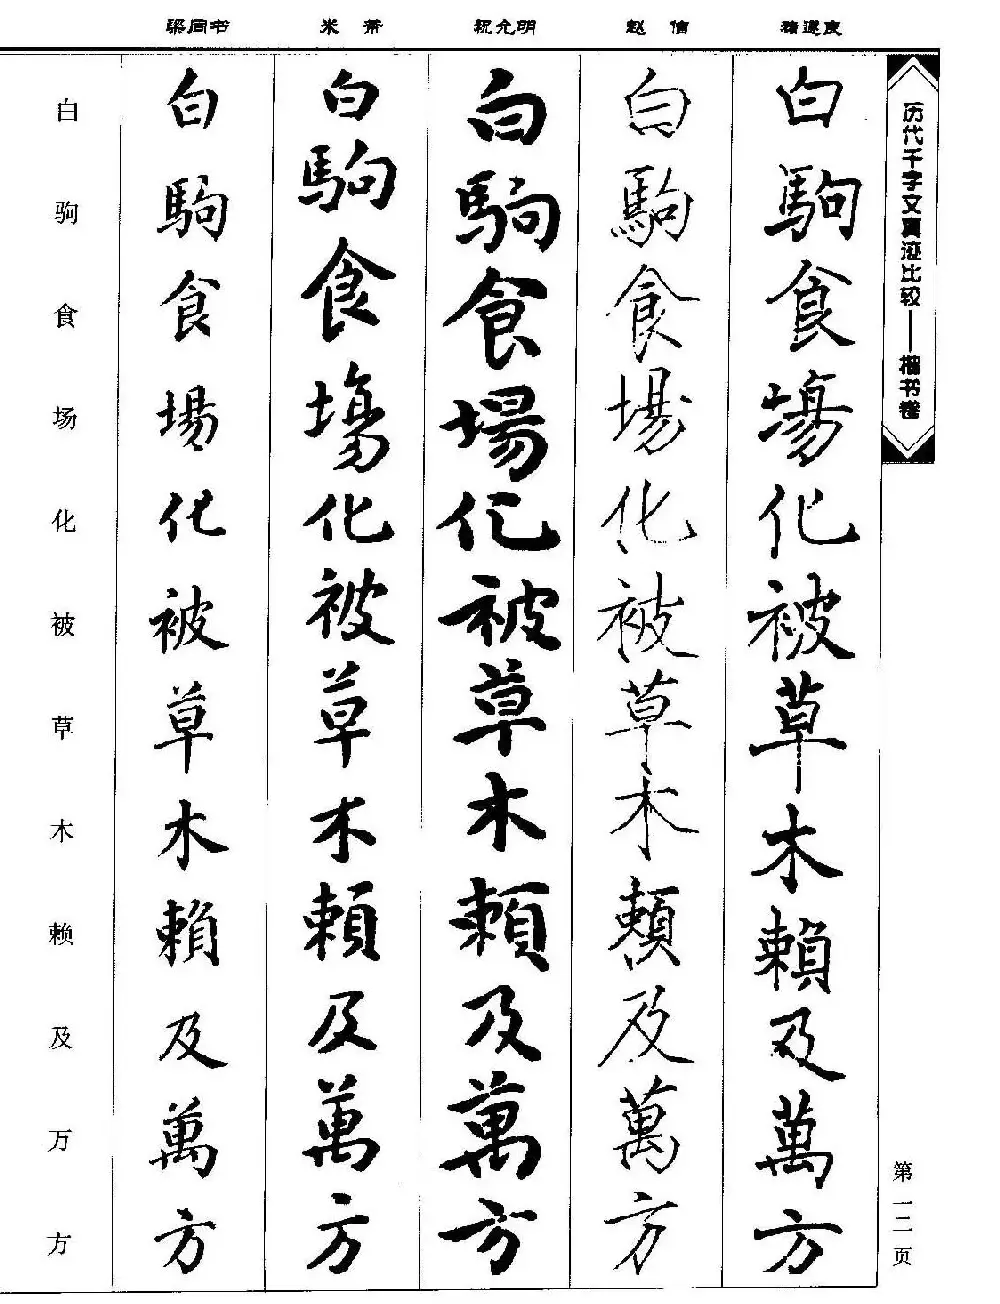 梁同书 米芾 祝允明 赵佶 褚遂良
历代千字文真迹比较——楷书卷
第一二页
白駒食塲化被草木賴及萬方
白駒食場化被草木賴及萬方
白駒食場化被草木賴及萬方
白駒食塲化被草木賴及萬方
白駒食場化被草木賴及萬方
白驹食场化被草木赖及万方